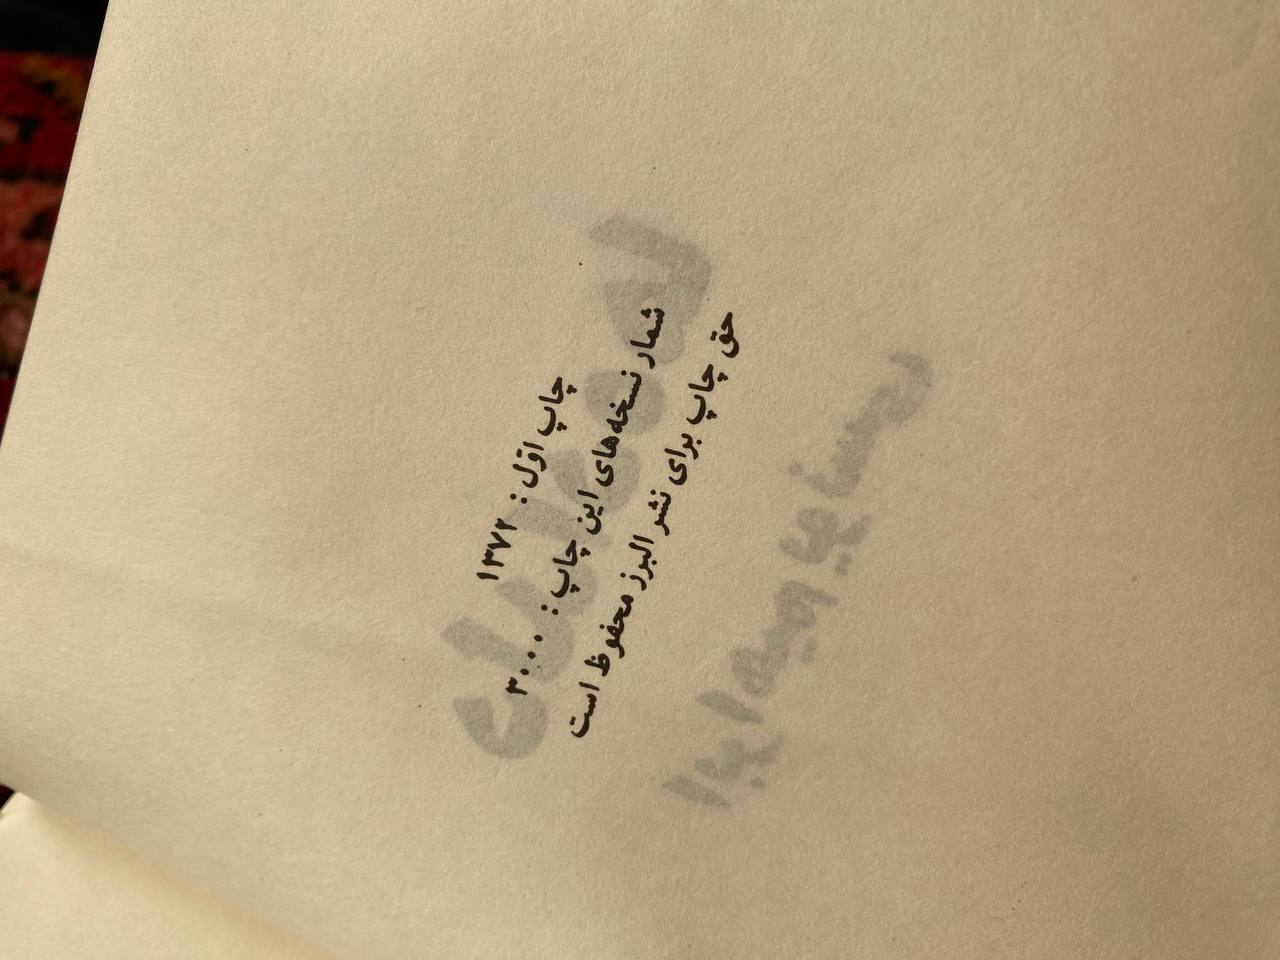 چاپ اوّل : ۱۳۷۲
شمار نسخه‌های این چاپ : ۳۰۰۰
حق چاپ برای نشر البرز محفوظ است